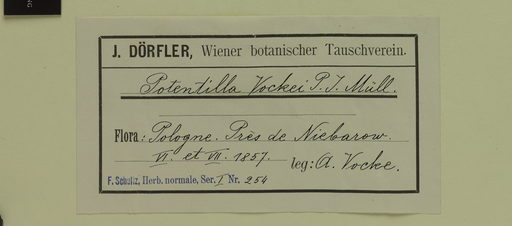 J. DÖRFLER, Wiener botanischer Tauschverein.
Potentilla Vockei P. J. Müll.
Flora: Pologne. Près de Niebarow.
VI. et VII. 1857.
leg: A. Vocke.
F. Schultz, Herb. normale, Ser. I Nr. 254